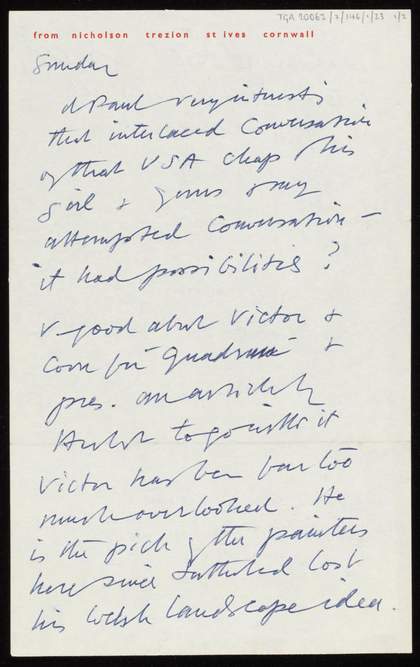 TGA 20062/2/146/1/23 1/2
from nicholson trezion st ives cornwall
Sunday
d Paul very interesting
that interlaced Conversation
of that USA chap & his
girl & yours & my
attempted Conversation –
it had possibilities ?
v. good about Victor &
Corn for Quadrum &
pres. an article by
to go with it
Victor has been far too
much overlooked. He
is the pick of the painters
here since Sutherland lost
his Welsh landscape idea.